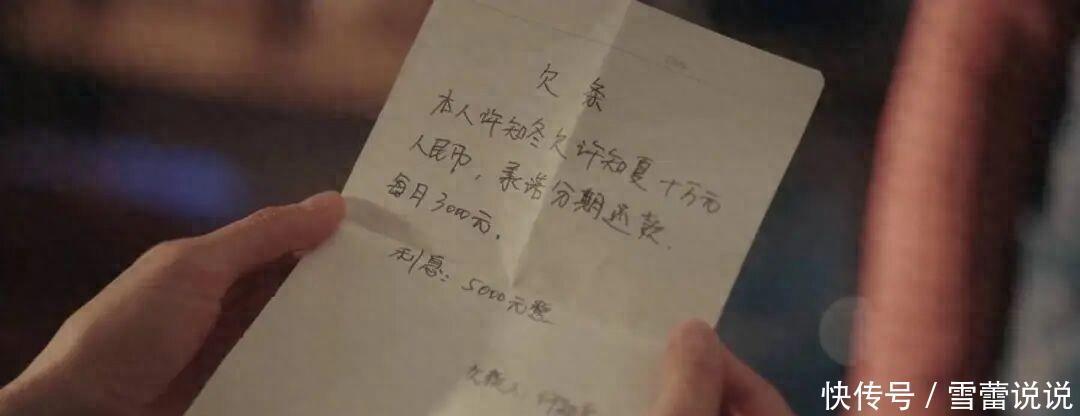 欠条
本人许知冬欠许知夏十万元
人民币，承诺分期还款.
每月3000元.
利息：5000元整
欠款人：许知
快传号 / 雪蕾说说